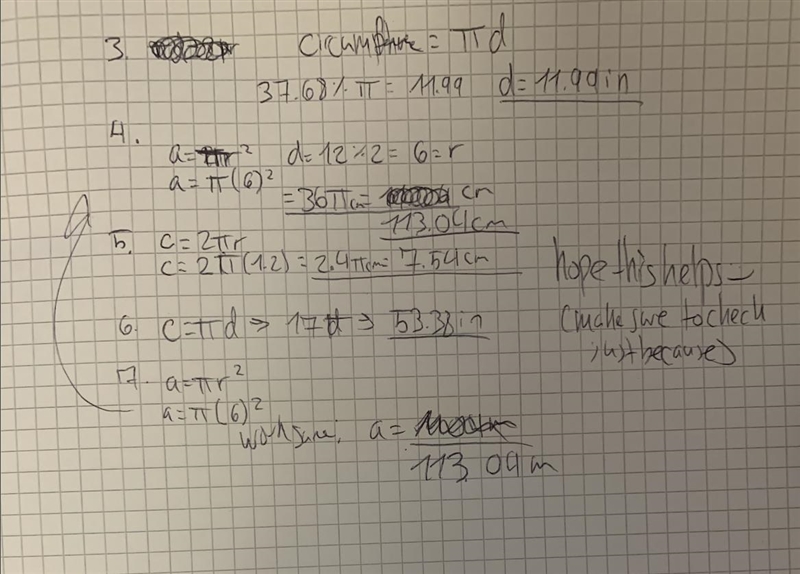 3. Circumfrence = πd
37.68 ⁒ π = 11.99 d = 11.99 in
4.
a = πr² d = 12 ⁒ 2 = 6 = r
a = π(6)²
= 36π cm = cm
113.04 cm
5. c = 2πr
c = 2π(1.2) = 2.4π cm = 7.54 cm
hope this helps
6. c = πd ⇒ 17π ⇒ 53.38 in
(make sure to check
just because)
7. a = πr²
a = π(6)²
work same: a =
113.04 m